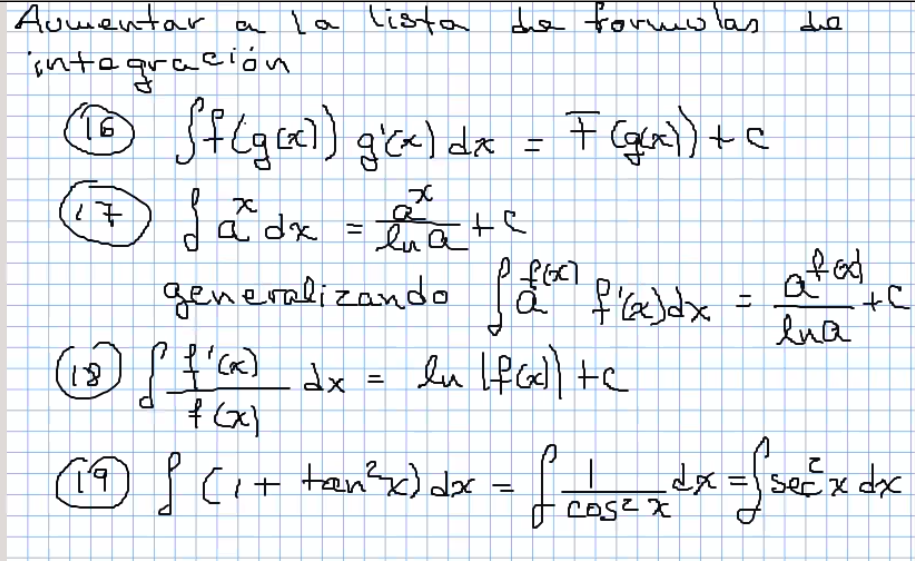 Aumentar a la lista de formulas de
integración
16 ∫f(g(x)) g'(x) dx = F(g(x)) + C
17 ∫ a^x dx = a^x / ln a + C
generalizando ∫ a^f(x) f'(x) dx = a^f(x) / ln a + C
18 ∫ f'(x) / f(x) dx = ln |f(x)| + C
19 ∫ (1 + tan²x) dx = ∫ 1 / cos² x dx = ∫ sec² x dx